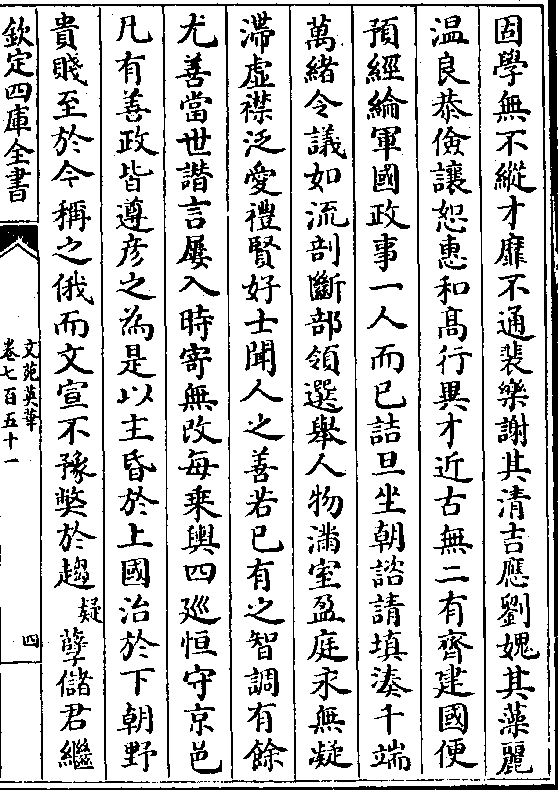 固學無不縱才靡不通裴樂謝其清吉應劉媿其藻麗
温良恭儉讓恕惠和髙行異才近古無二有齊建國便
預經綸軍國政事一人而已詰旦坐朝諮請填湊千端
萬緒令議如流剖斷部領選舉人物滿室盈庭永無凝
滯虚襟泛愛禮賢好士聞人之善若已有之智調有餘
尤善當世譛言屢入時寄無改每乗輿四廵恒守京邑
凡有善政皆遵彦之為是以主昏於上國治於下朝野
貴賤至於今稱之俄而文宣不豫獘於趨疑孽儲君繼
欽定四庫全書
文苑英華
卷七百五十一
四